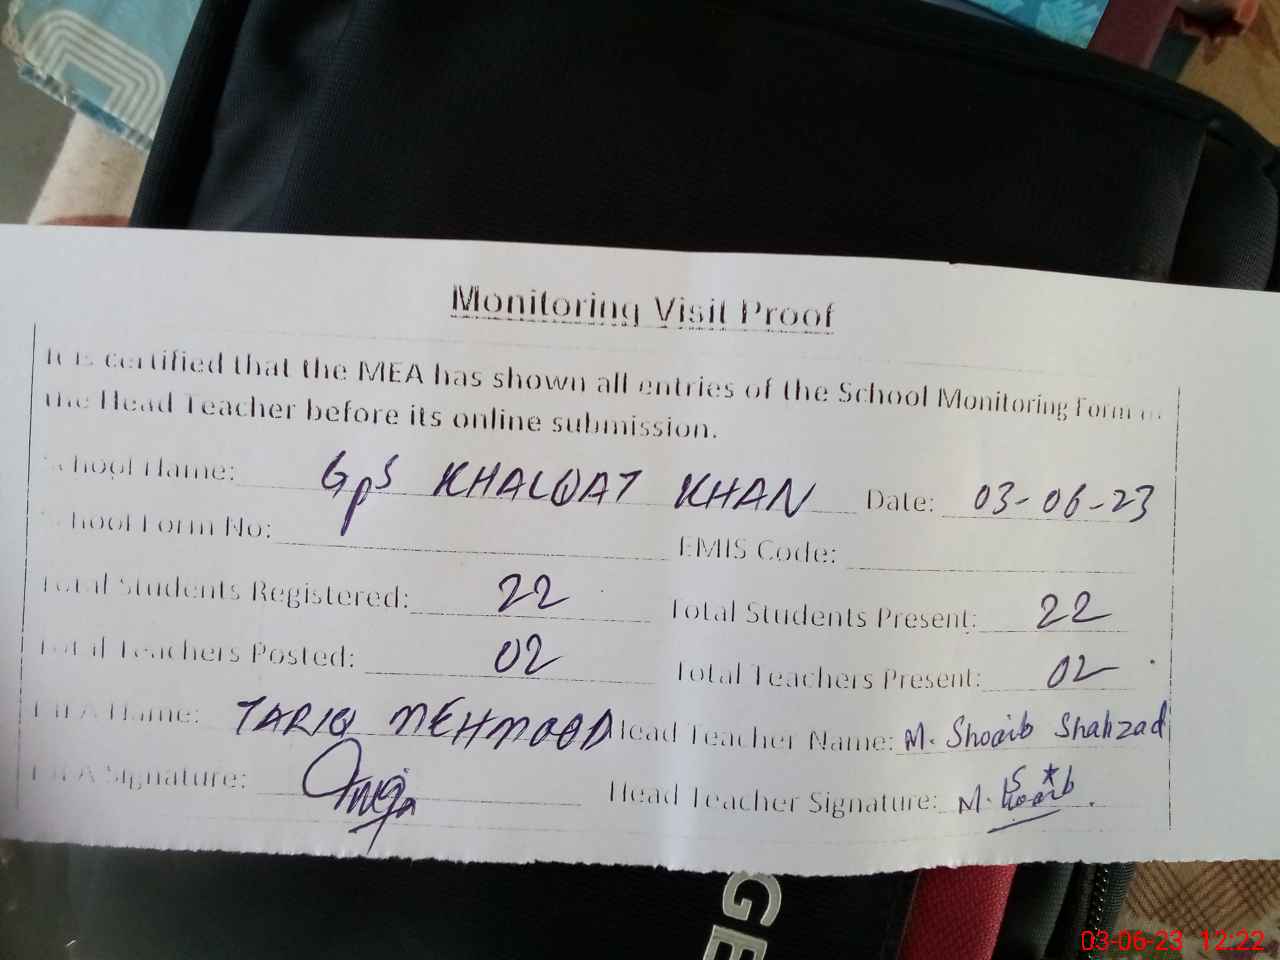 Monitoring Visit Proof
It is certified that the MEA has shown all entries of the School Monitoring Form to
the Head Teacher before its online submission.
School Name: GpS KHALQAT KHAN Date: 03-06-23
School Form No: EMIS Code:
Total Students Registered: 22 Total Students Present: 22
Total Teachers Posted: 02 Total Teachers Present: 02
MEA Name: TARIQ MEHMOOD Head Teacher Name: M. Shoaib Shahzad
MEA Signature: Head Teacher Signature: M. Shoaib
GE
03-06-23 12:22